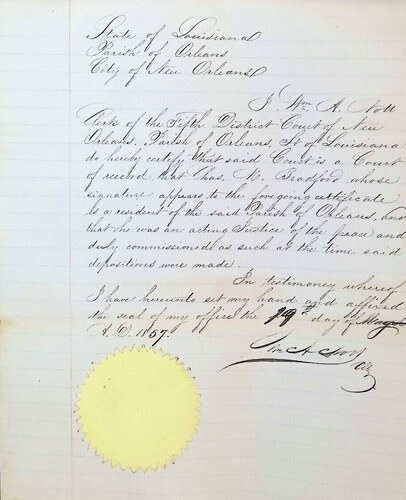 State of Louisiana
Parish of Orleans
City of New Orleans
I Wm A. Nott
Clerk of the Fifth District Court of New
Orleans, Parish of Orleans, St of Louisiana
do hereby certify that said Court is a Court
of record that Chas. W. Bradford whose
signature appears to the foregoing certificate
is a resident of the said Parish of Orleans, and
that he was an acting Justice of the peace and
duly commissioned as such at the time said
depositions were made.
In testimony whereof
I have hereunto set my hand and affixed
the seal of my office the 19th day of
A.D. 1857.
Wm A Nott